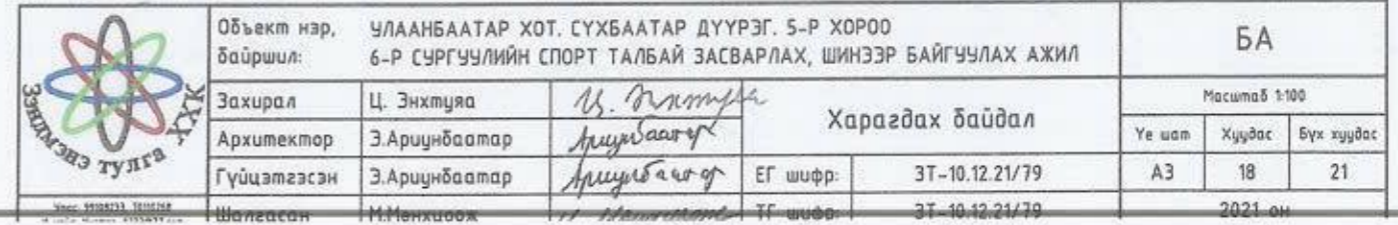 Зэндмэнэ тулга ХХК
Объект нэр, байршил:
УЛААНБААТАР ХОТ. СҮХБААТАР ДҮҮРЭГ. 5-Р ХОРОО
6-Р СУРГУУЛИЙН СПОРТ ТАЛБАЙ ЗАСВАРЛАХ, ШИНЭЭР БАЙГУУЛАХ АЖИЛ
БА
Захирал Ц. Энхтуяа Ц. Энхтуяа
Харагдах байдал
Масштаб 1:100
Архитектор Э.Ариунбаатар Ариунбаатар
Үе шат Хуудас Бүх хуудас
Гүйцэтгэсэн Э.Ариунбаатар Ариунбаатар ЕГ шифр: ЗТ-10.12.21/79 А3 18 21
Шалгасан ТГ шифр: ЗТ-10.12.21/79 2021 он